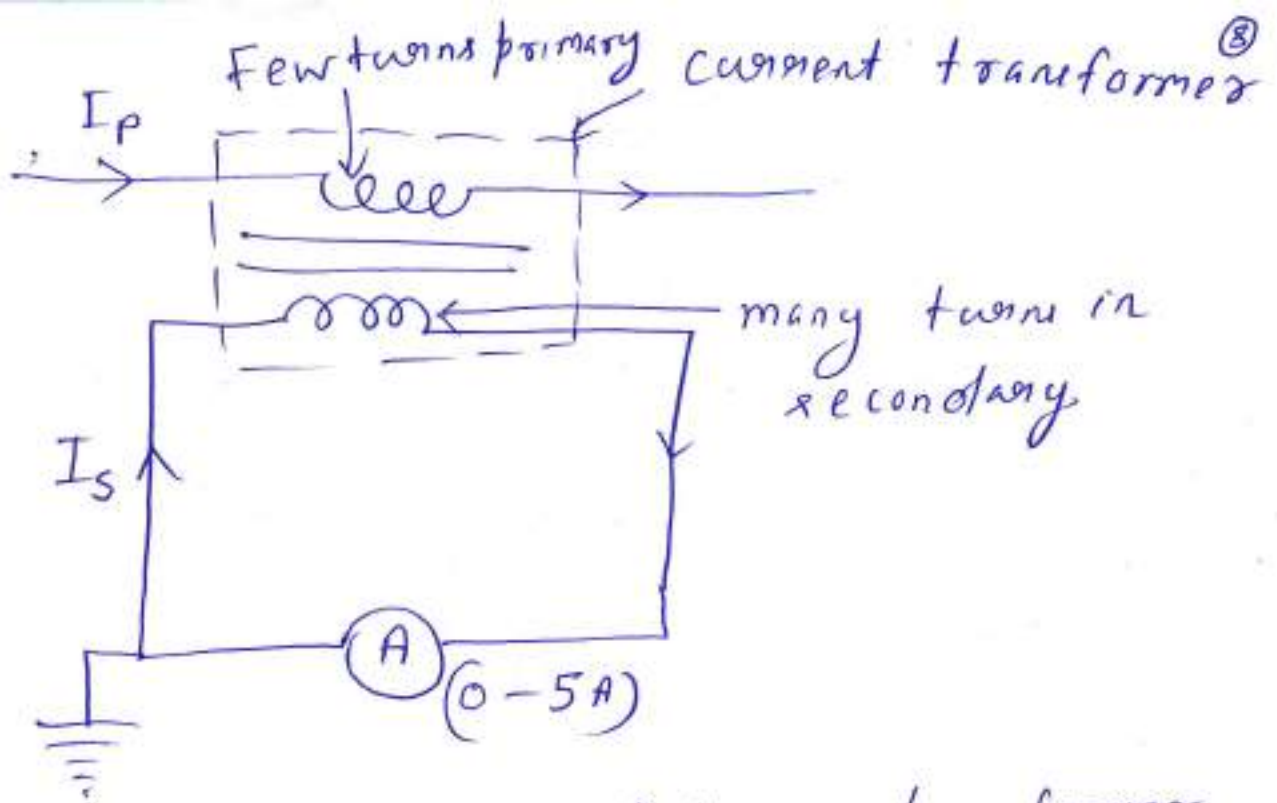 8
Few turns primary
current transformer
Ip
many turns in
secondary
Is
A
(0-5A)